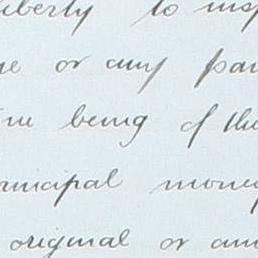 liberty to insp
ne or any par
time being of the
municipal money
original or am